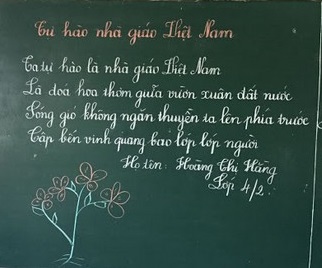 Tự hào nhà giáo Việt Nam
Ta tự hào là nhà giáo Việt Nam
Là đoá hoa thơm giữa vườn xuân đất nước
Sóng gió không ngăn thuyền ta lên phía trước
Cập bến vinh quang bao lớp lớp người
Họ tên: Hoàng Thị Hằng
Lớp 4/2.